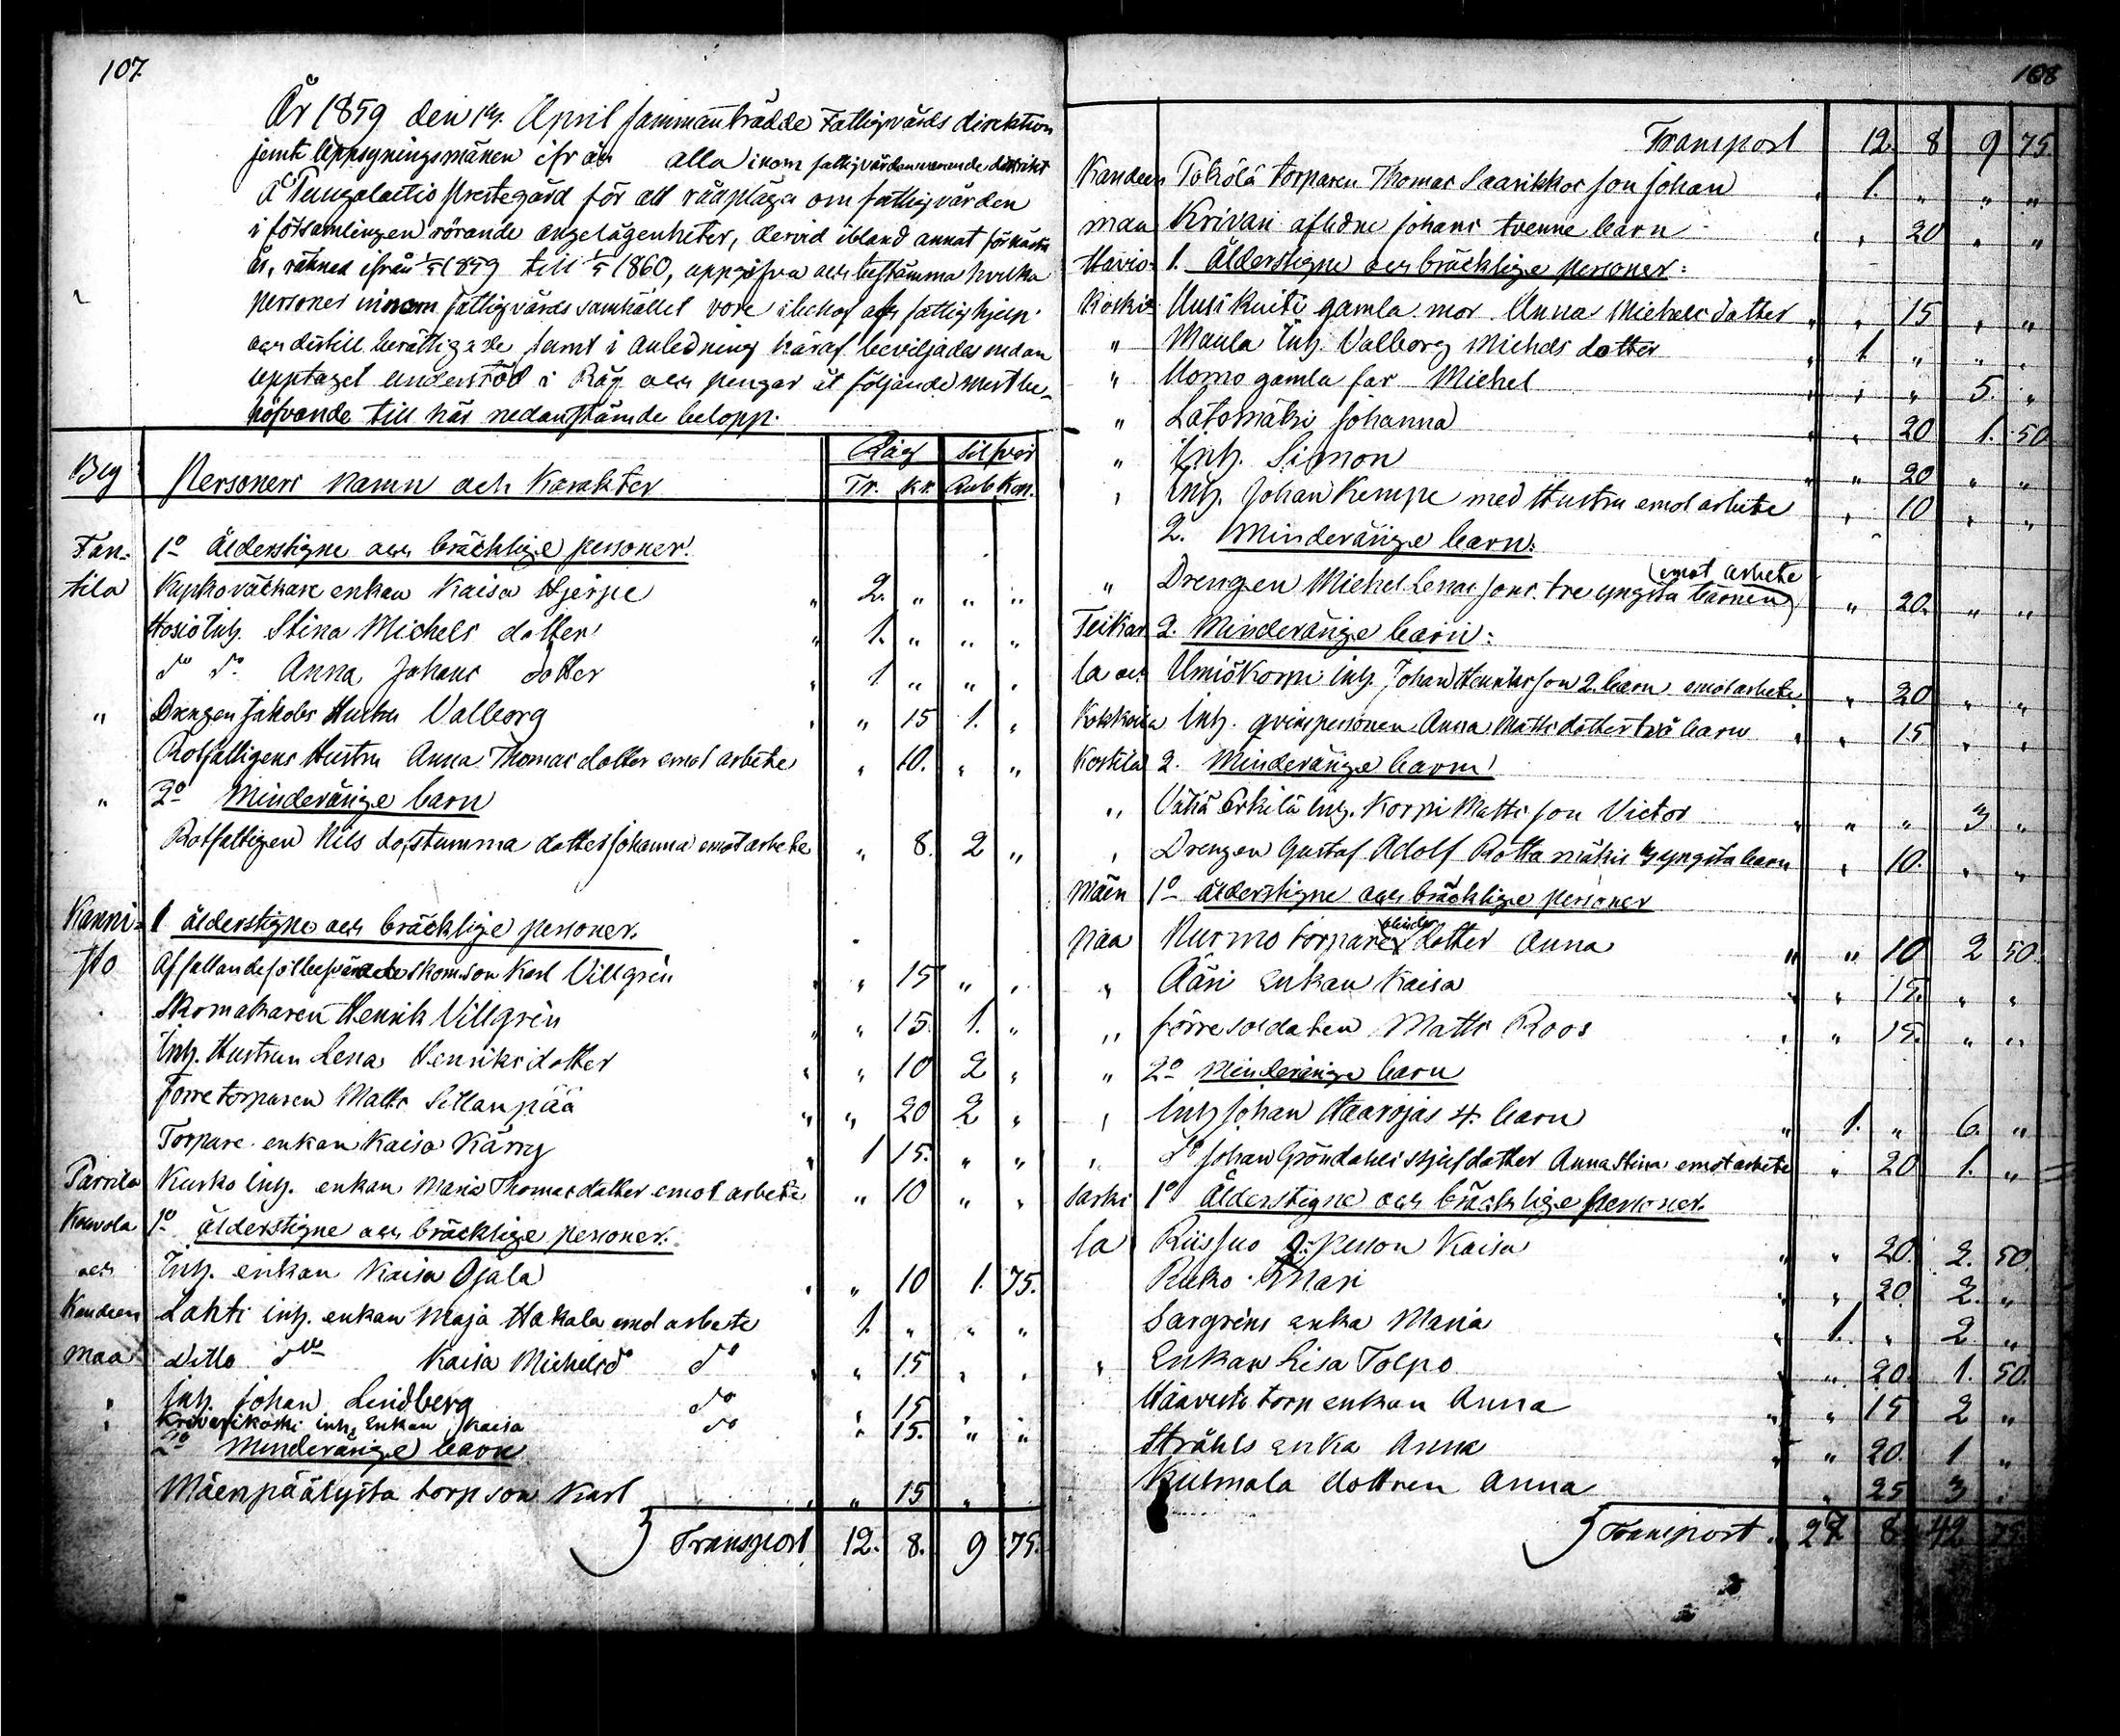 107.
År 1859 den 14. April sammanträdde Fattigvårds direktion
jemte Uppsyningsmänen ifrån alla inom fattigvården warande distrikt
å Tungalaitio prestegård för att rådpläga om fattigvården
i församlingen rörande angelägenheter, dervid ibland annat för nästa
år, räknad ifrån 1/5 1859 till 1/5 1860, uppgifva och bestämma hvilka
personer innom fattigvårds samhället vore i behof af fattighjelp
och dertill berättigade, samt i anledning häraf beviljades nedan
upptaget understöd i Råg och pengar åt följande mest be-
höfvande till här nedanstående belopp.
By Personers namn och Karakter Råg Silfver
Tr. kr. Rub. Kop.
Fan- 1o ålderstigne och bräcklige personer.
tila Kupkoväckare enkan Kaisa Hjerpe " 2. " " "
Hosio Inh. Stina Michels dotter " 1. " " "
do do Anna Johans dotter " 1 " " "
" Drengen Jakobs Hustru Valborg " " 15 1. "
Rotfattigens Hustru Anna Thomas dotter emot arbete " 10. " "
" 2o Minderårige barn
Rotfattigen Nils döfstumma dotter Johanna emot arbete " 8. 2 "
Kanni- 1 ålderstigne och bräcklige personer.
sto Affallandesot besvärade skom. son Karl Villgrén " " 15 " "
Skomakaren Henrik Villgrén " " 15 1. "
Inh. Hustrun Lena Henriks dotter " " 10 2 "
Förre torparen Matts Sillanpää " " 20 2 "
Torpare enkan Kaisa Kärry " 1 15. " "
Parrila Kurko Inh. enkan Maria Thomas dotter emot arbete " 10 " "
Kouvola 1o ålderstigne och bräcklige personer.
och Inh. enkan Kaisa Ojala " " 10 1. 75.
Kandeen Lahti inh. enkan Maja Hakala emot arbete 1. " " "
maa Ditto do Kaisa Michelsd do " " 15 " "
" Inh. Johan Lindberg do " 15 " "
" Krivarikoski inh. Enkan Kaisa do " 15. " "
2o Minderårige barn
Mäenpäälystä torp son Karl " " 15 "
Transport 12. 8. 9 75.
108
Transport 12. 8 9 75.
Kandeen Tokölä torparen Thomas Saarikkos son Johan " 1. " " "
maa Krivari aflidne Johans tvenne barn " " 20 " "
Havio- 1. Ålderstigne och bräcklige personer:
koski Uusikuiti gamla mor Anna Michels dotter " " 15 " "
" Maula Inh. Valborg Michels dotter " 1. " " "
" Uomo gamla far Michel " " " 5. "
" Latomäki Johanna " " 20 1. 50
" Inh. Simon " " 20 " "
" Inh. Johan Kempe med Hustru emot arbete " 10 " "
2. Minderårige barn.
" Drengen Michel Lenas sons tre yngsta barnen (emot arbete) " 20. " "
Teikan 2. Minderårige barn:
la och Ulmiö Korpi inh. Johan Henriks son 2. barn emot arbete " 20 " "
Kokkoila Inh. qvinspersonen Anna Matts dotter två barn " " 15 " "
Kostila 2. Minderårige barn
" Vähä Erkilä inh. Korpi Matts son Victor " " " 3 "
" Drengen Gustaf Adolf Rottamäkis yngsta barn " 10. " "
Mäen 1o ålderstigne och bräcklige personer
pää Nurmo torpare blinda dotter Anna " " 10 2 50.
" Ääri Enkan Kaisa " " 15. " "
" förre soldaten Matts Roos " " 15. " "
" 2o Minderårige barn
" Inh. Johan Haarojas 4. barn " 1. " 6. "
" do Johan Gröndahls stjufdotter Anna Stina emot arbete " 20 1. "
Sarki 1o Ålderstigne och bräcklige personer.
la Riissuo person Kaisa " " 20. 2. 50
Ruko Mari " " 20. 2. "
Sargréns enka Maria " 1. " 2 "
" Enkan Lisa Tolpo " 20. 1. 50.
Haavisto torp enkan Anna " " 15 2 "
Stråhls enka Anna " " 20. 1 "
Kulmala dottren Anna " 25 3 "
Transport. 27. 8 42 75.